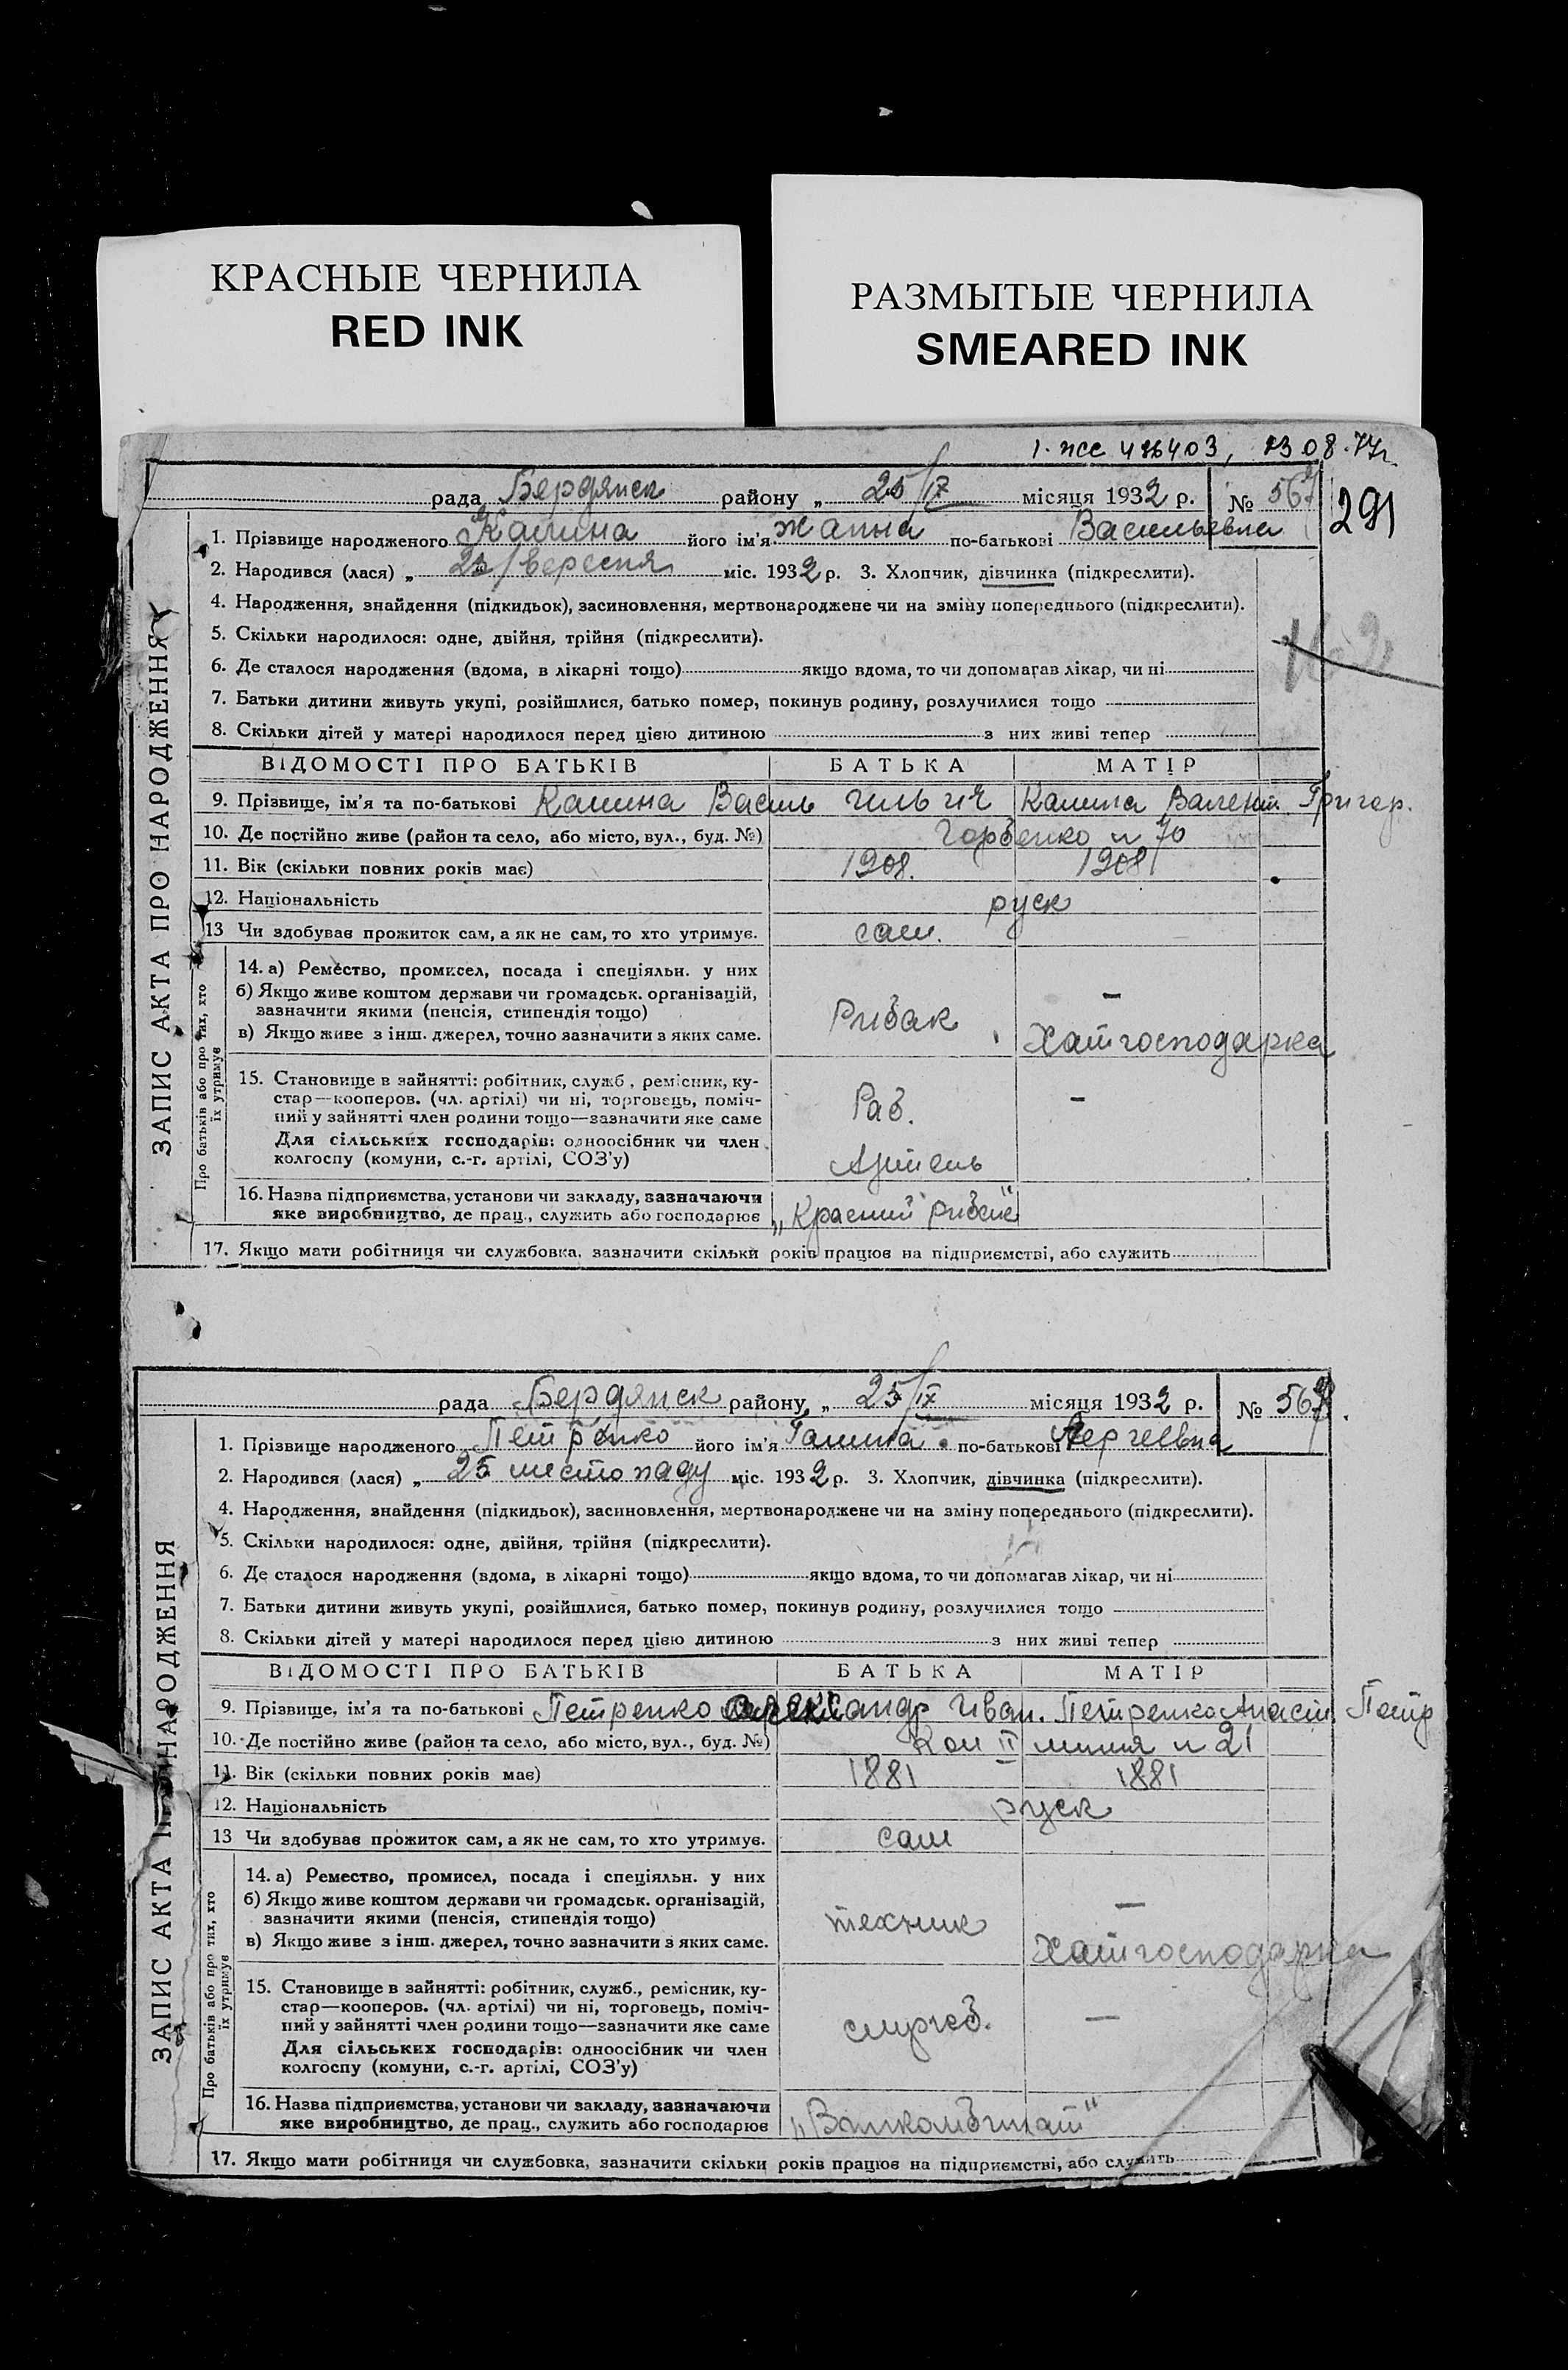 КРАСНЫЕ ЧЕРНИЛА
RED INK
РАЗМЫТЫЕ ЧЕРНИЛА
SMEARED INK
рада Бердянск району „ 25/IX місяця 1932 р. №
291
1. Прізвище народженого Калина його ім'я Жанна по-батькові Васильевна
2. Народився (лася) „ вересня міс. 1932 р. 3. Хлопчик, дівчинка (підкреслити).
4. Народження, знайдення (підкидьок), засиновлення, мертвонароджене чи на зміну попереднього (підкреслити).
5. Скільки народилося: одне, двійня, трійня (підкреслити).
6. Де сталося народження (вдома, в лікарні тощо) якщо вдома, то чи допомагав лікар, чи ні
7. Батьки дитини живуть укупі, розійшлися, батько помер, покинув родину, розлучилися тощо
8. Скільки дітей у матері народилося перед цією дитиною з них живі тепер
ВІДОМОСТІ ПРО БАТЬКІВ БАТЬКА МАТІР
9. Прізвище, ім'я та по-батькові Калина Василь Калина Валент. Григор.
10. Де постійно живе (район та село, або місто, вул., буд. №) Горбенко н 70
11. Вік (скільки повних років має) 1908. 1908
12. Національність руск
13 Чи здобував прожиток сам, а як не сам, то хто утримує. сам.
14. а) Ремество, промисел, посада і спеціяльн. у них
б) Якщо живе коштом держави чи громадськ. організацій,
зазначити якими (пенсія, стипендія тощо)
в) Якщо живе з інш. джерел, точно зазначити з яких саме.
Рибак
–
Хатгосподарка
15. Становище в зайнятті: робітник, служб., ремісник, ку-
стар—кооперов. (чл. артілі) чи ні, торговець, поміч-
ний у зайнятті член родини тощо—зазначити яке саме
Для сільських господарів: одноосібник чи член
колгоспу (комуни, с.-г. артілі, СОЗ'у)
Раб.
–
Артель
16. Назва підприємства, установи чи закладу, зазначаючи
яке виробництво, де прац., служить або господарює
17. Якщо мати робітниця чи службовка, зазначити скільки років працює на підприємстві, або служить
ЗАПИС АКТА ПРО НАРОДЖЕННЯ
Про батьків або про тих, хто
їх утримує
рада Бердянск району „ 25/IX місяця 1932 р. №
1. Прізвище народженого Петренко його ім'я Галина по-батькові
2. Народився (лася) „ 25 листопаду міс. 1932 р. 3. Хлопчик, дівчинка (підкреслити).
4. Народження, знайдення (підкидьок), засиновлення, мертвонароджене чи на зміну попереднього (підкреслити).
5. Скільки народилося: одне, двійня, трійня (підкреслити).
6. Де сталося народження (вдома, в лікарні тощо) якщо вдома, то чи допомагав лікар, чи ні
7. Батьки дитини живуть укупі, розійшлися, батько помер, покинув родину, розлучилися тощо
8. Скільки дітей у матері народилося перед цією дитиною з них живі тепер
ВІДОМОСТІ ПРО БАТЬКІВ БАТЬКА МАТІР
9. Прізвище, ім'я та по-батькові Петренко Александр Иван. Петренко Анаст Петр
10. Де постійно живе (район та село, або місто, вул., буд. №) Кол II линия н 21
11. Вік (скільки повних років має) 1881 1881
12. Національність руск
13 Чи здобував прожиток сам, а як не сам, то хто утримує. сам
14. а) Ремество, промисел, посада і спеціяльн. у них
б) Якщо живе коштом держави чи громадськ. організацій,
зазначити якими (пенсія, стипендія тощо)
в) Якщо живе з інш. джерел, точно зазначити з яких саме.
техник
—
Хатгосподарка
15. Становище в зайнятті: робітник, служб., ремісник, ку-
стар—кооперов. (чл. артілі) чи ні, торговець, поміч-
ний у зайнятті член родини тощо—зазначити яке саме
Для сільських господарів: одноосібник чи член
колгоспу (комуни, с.-г. артілі, СОЗ'у)
служб.
—
16. Назва підприємства, установи чи закладу, зазначаючи
яке виробництво, де прац., служить або господарює
17. Якщо мати робітниця чи службовка, зазначити скільки років працює на підприємстві, або служить
ЗАПИС АКТА НАРОДЖЕННЯ
Про батьків або про тих, хто
їх утримує